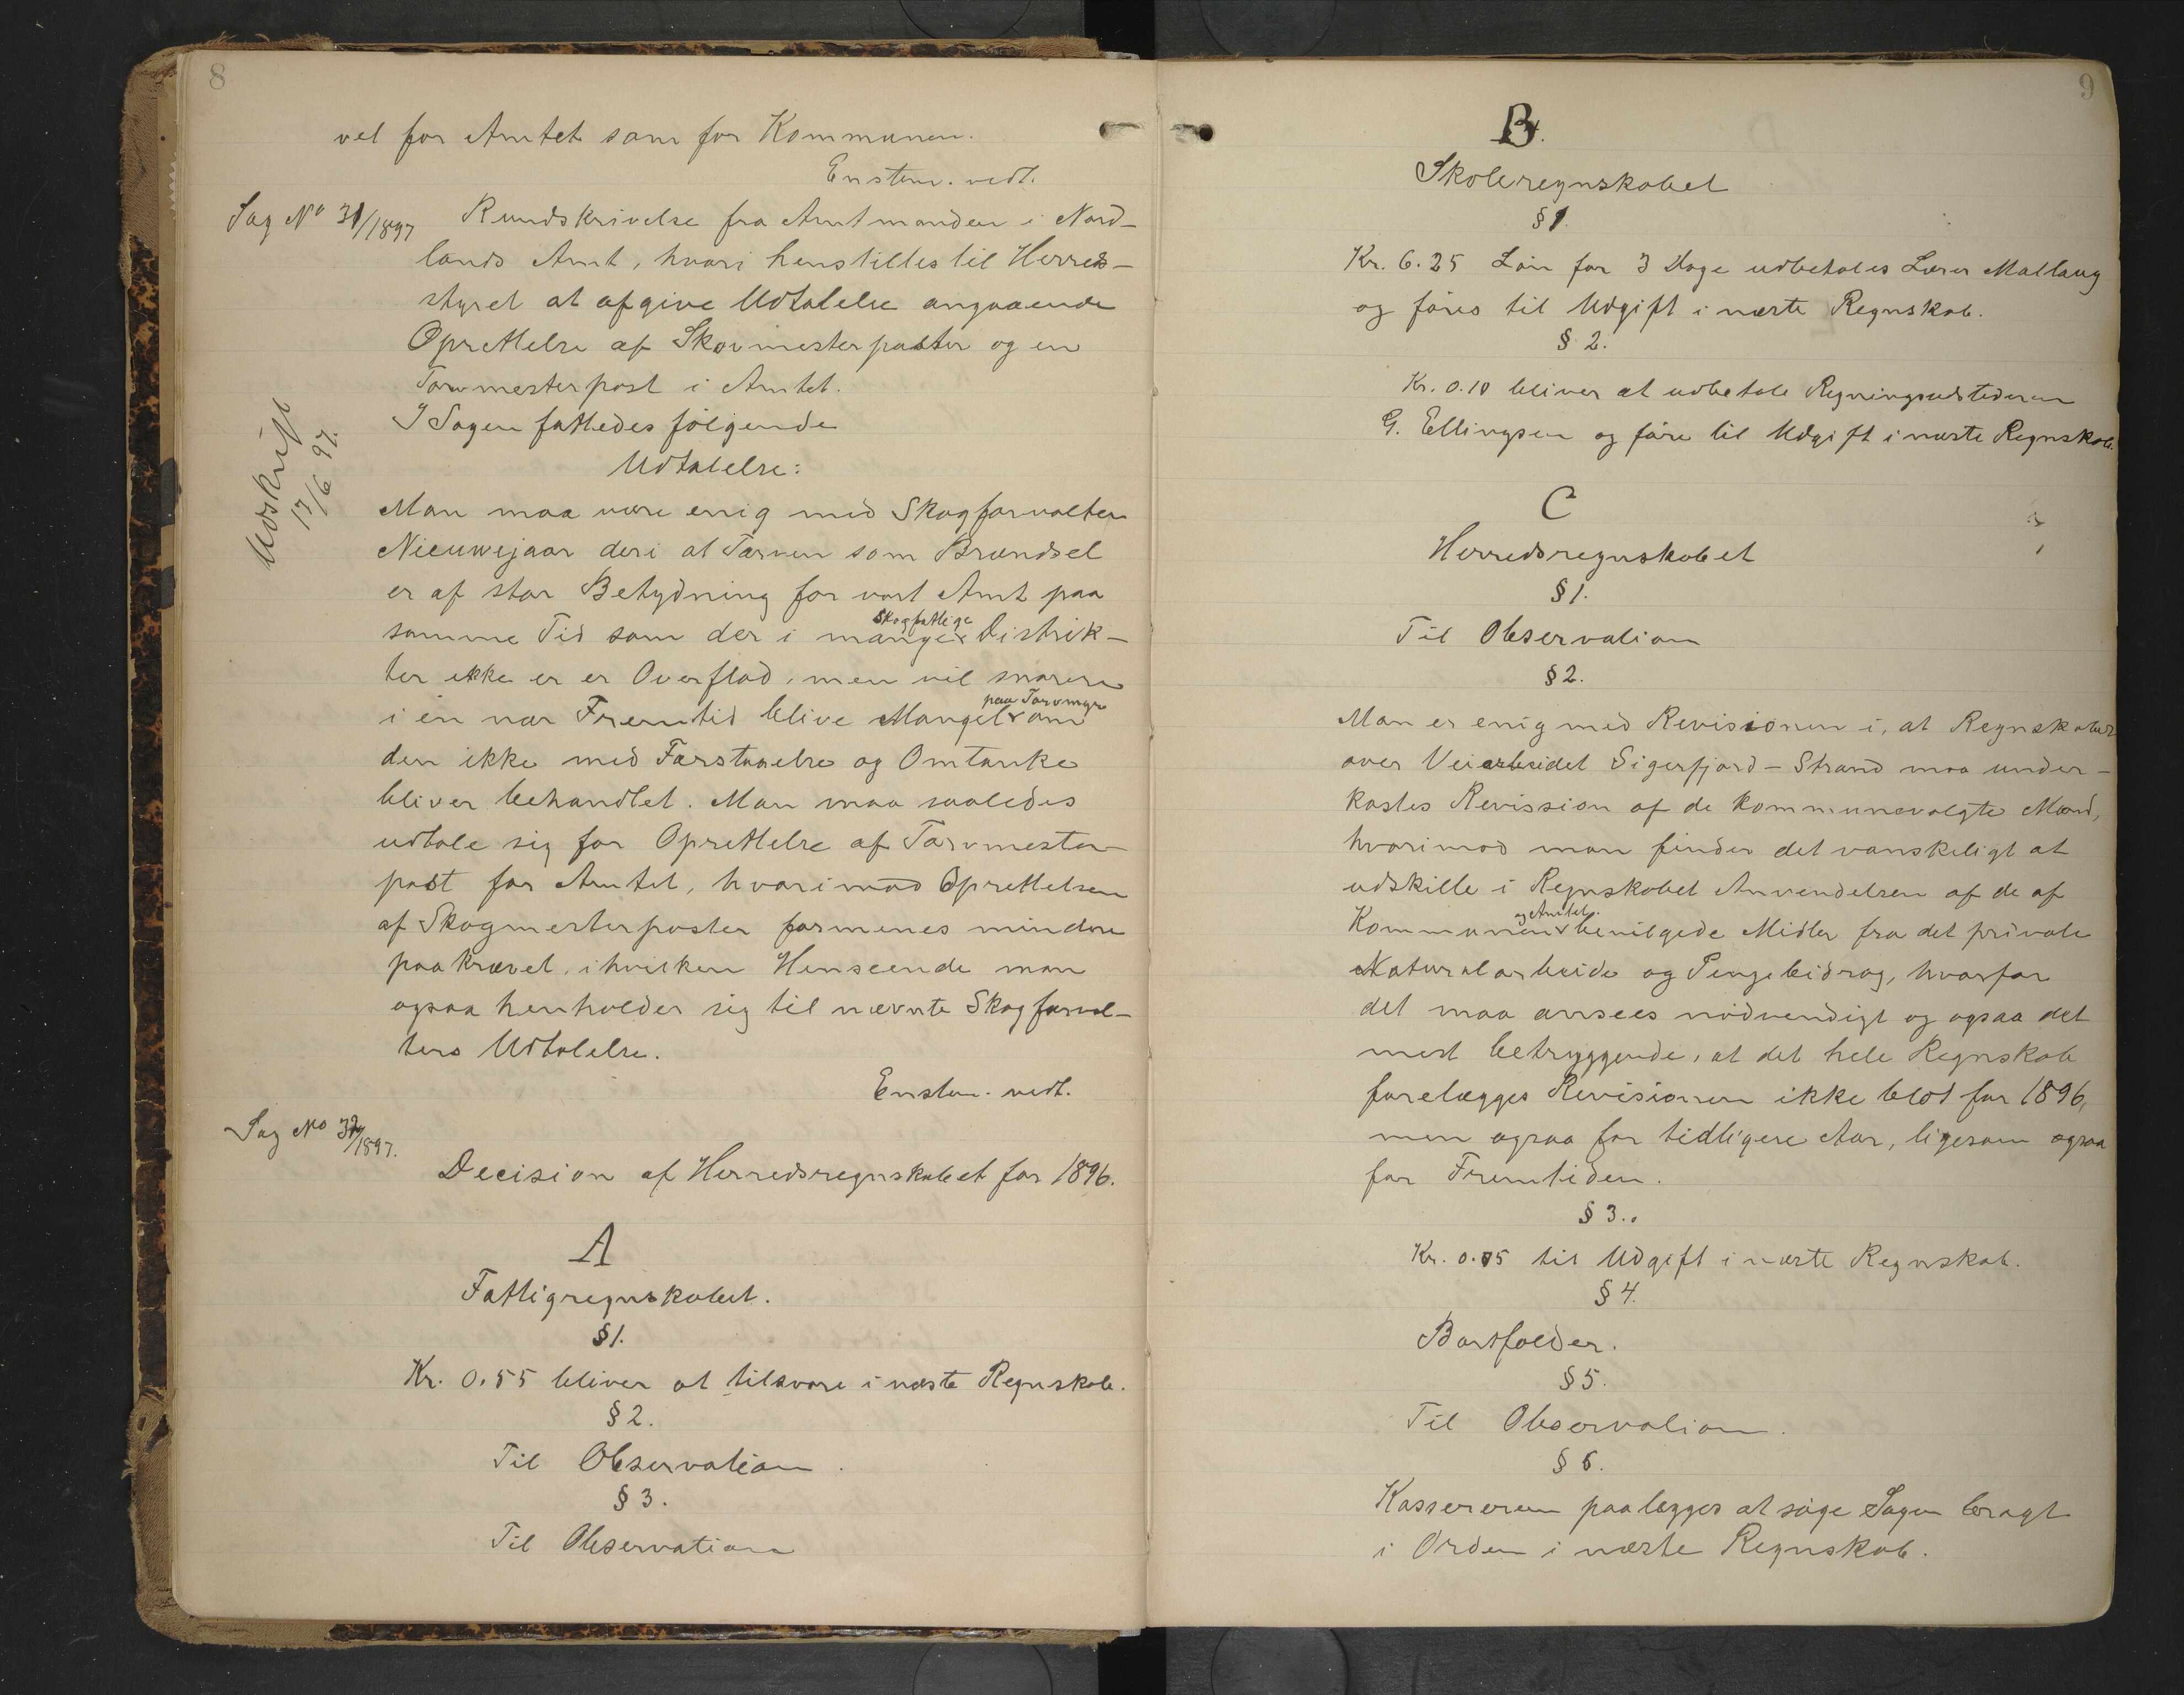 8
vel for Amtet som for Kommunen.
Enstem. vedt.
Sag No 31/1897 Rundskrivelse fra Amtmanden i Nord-
lands Amt, hvori henstilles til Herreds-
styret at afgive Udtalelse angaaende
Oprettelse af Skovmesterposter og en
Torvmesterpost i Amtet.
I Sagen fattedes følgende
Udskrift
17/6 97.
Udtalelse:
Man maa være enig med Skogforvalter
Nieuwejaar deri at Torven som Brændsel
er af stor Betydning for vort Amt paa
samme Tid som der i mange skogfattige Distrik-
ter ikke er er Overflod, men vil snarere
i en nær Fremtid blive Mangel paa Torvmyr om
den ikke med Forstaaelse og Omtanke
bliver behandlet. Man maa saaledes
udtale sig for Oprettelse af Torvmester-
post for Amtet, hvorimod Oprettelsen
af Skogmesterposter formenes mindre
paakrævet, i hvilken Henseende man
ogsaa henholder sig til nævnte Skogforval-
ters Udtalelse.
Enstem. vedt.
Sag No 32/1897.
Decision af Herredsregnskabet for 1896.
A
Fattigregnskabet.
§ 1.
Kr. 0.55 bliver at tilsvare i næste Regnskab.
§ 2.
Til Observation.
§ 3.
Til Observation
9
B.
Skoleregnskabet
§ 1
Kr. 6.25 Løn for 3 Dage udbetales Lærer Mallaug
og føres til Udgift i næste Regnskab.
§ 2.
Kr. 0.10 bliver at udbetale Regningsudstederen
G. Ellingsen og føre til Udgift i næste Regnskab.
C
Herredsregnskabet
§ 1.
Til Observation
§ 2.
Man er enig med Revisionen i, at Regnskabet
over Veiarbeidet Sigerfjord - Strand maa under-
kastes Revission af de kommunevalgte Mænd,
hvorimod man finder det vanskeligt at
udskille i Regnskabet Anvendelsen af de af
Kommunen og Amtet bevilgede Midler fra det private
Naturalarbeide og Pengebidrag, hvorfor
det maa ansees nødvendigt og ogsaa det
mest betryggende, at det hele Regnskab
forelægges Revisionen ikke blot for 1896,
men ogsaa for tidligere Aar, ligesom ogsaa
for Fremtiden.
§ 3.
Kr. 0.05 til Udgift i næste Regnskab.
§ 4.
Bortfalder.
§ 5.
Til Observation.
§ 6.
Kassereren paalægges at søge Sagen bragt
i Orden i næste Regnskab.